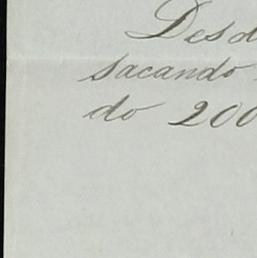 Desd
sacando
do 200